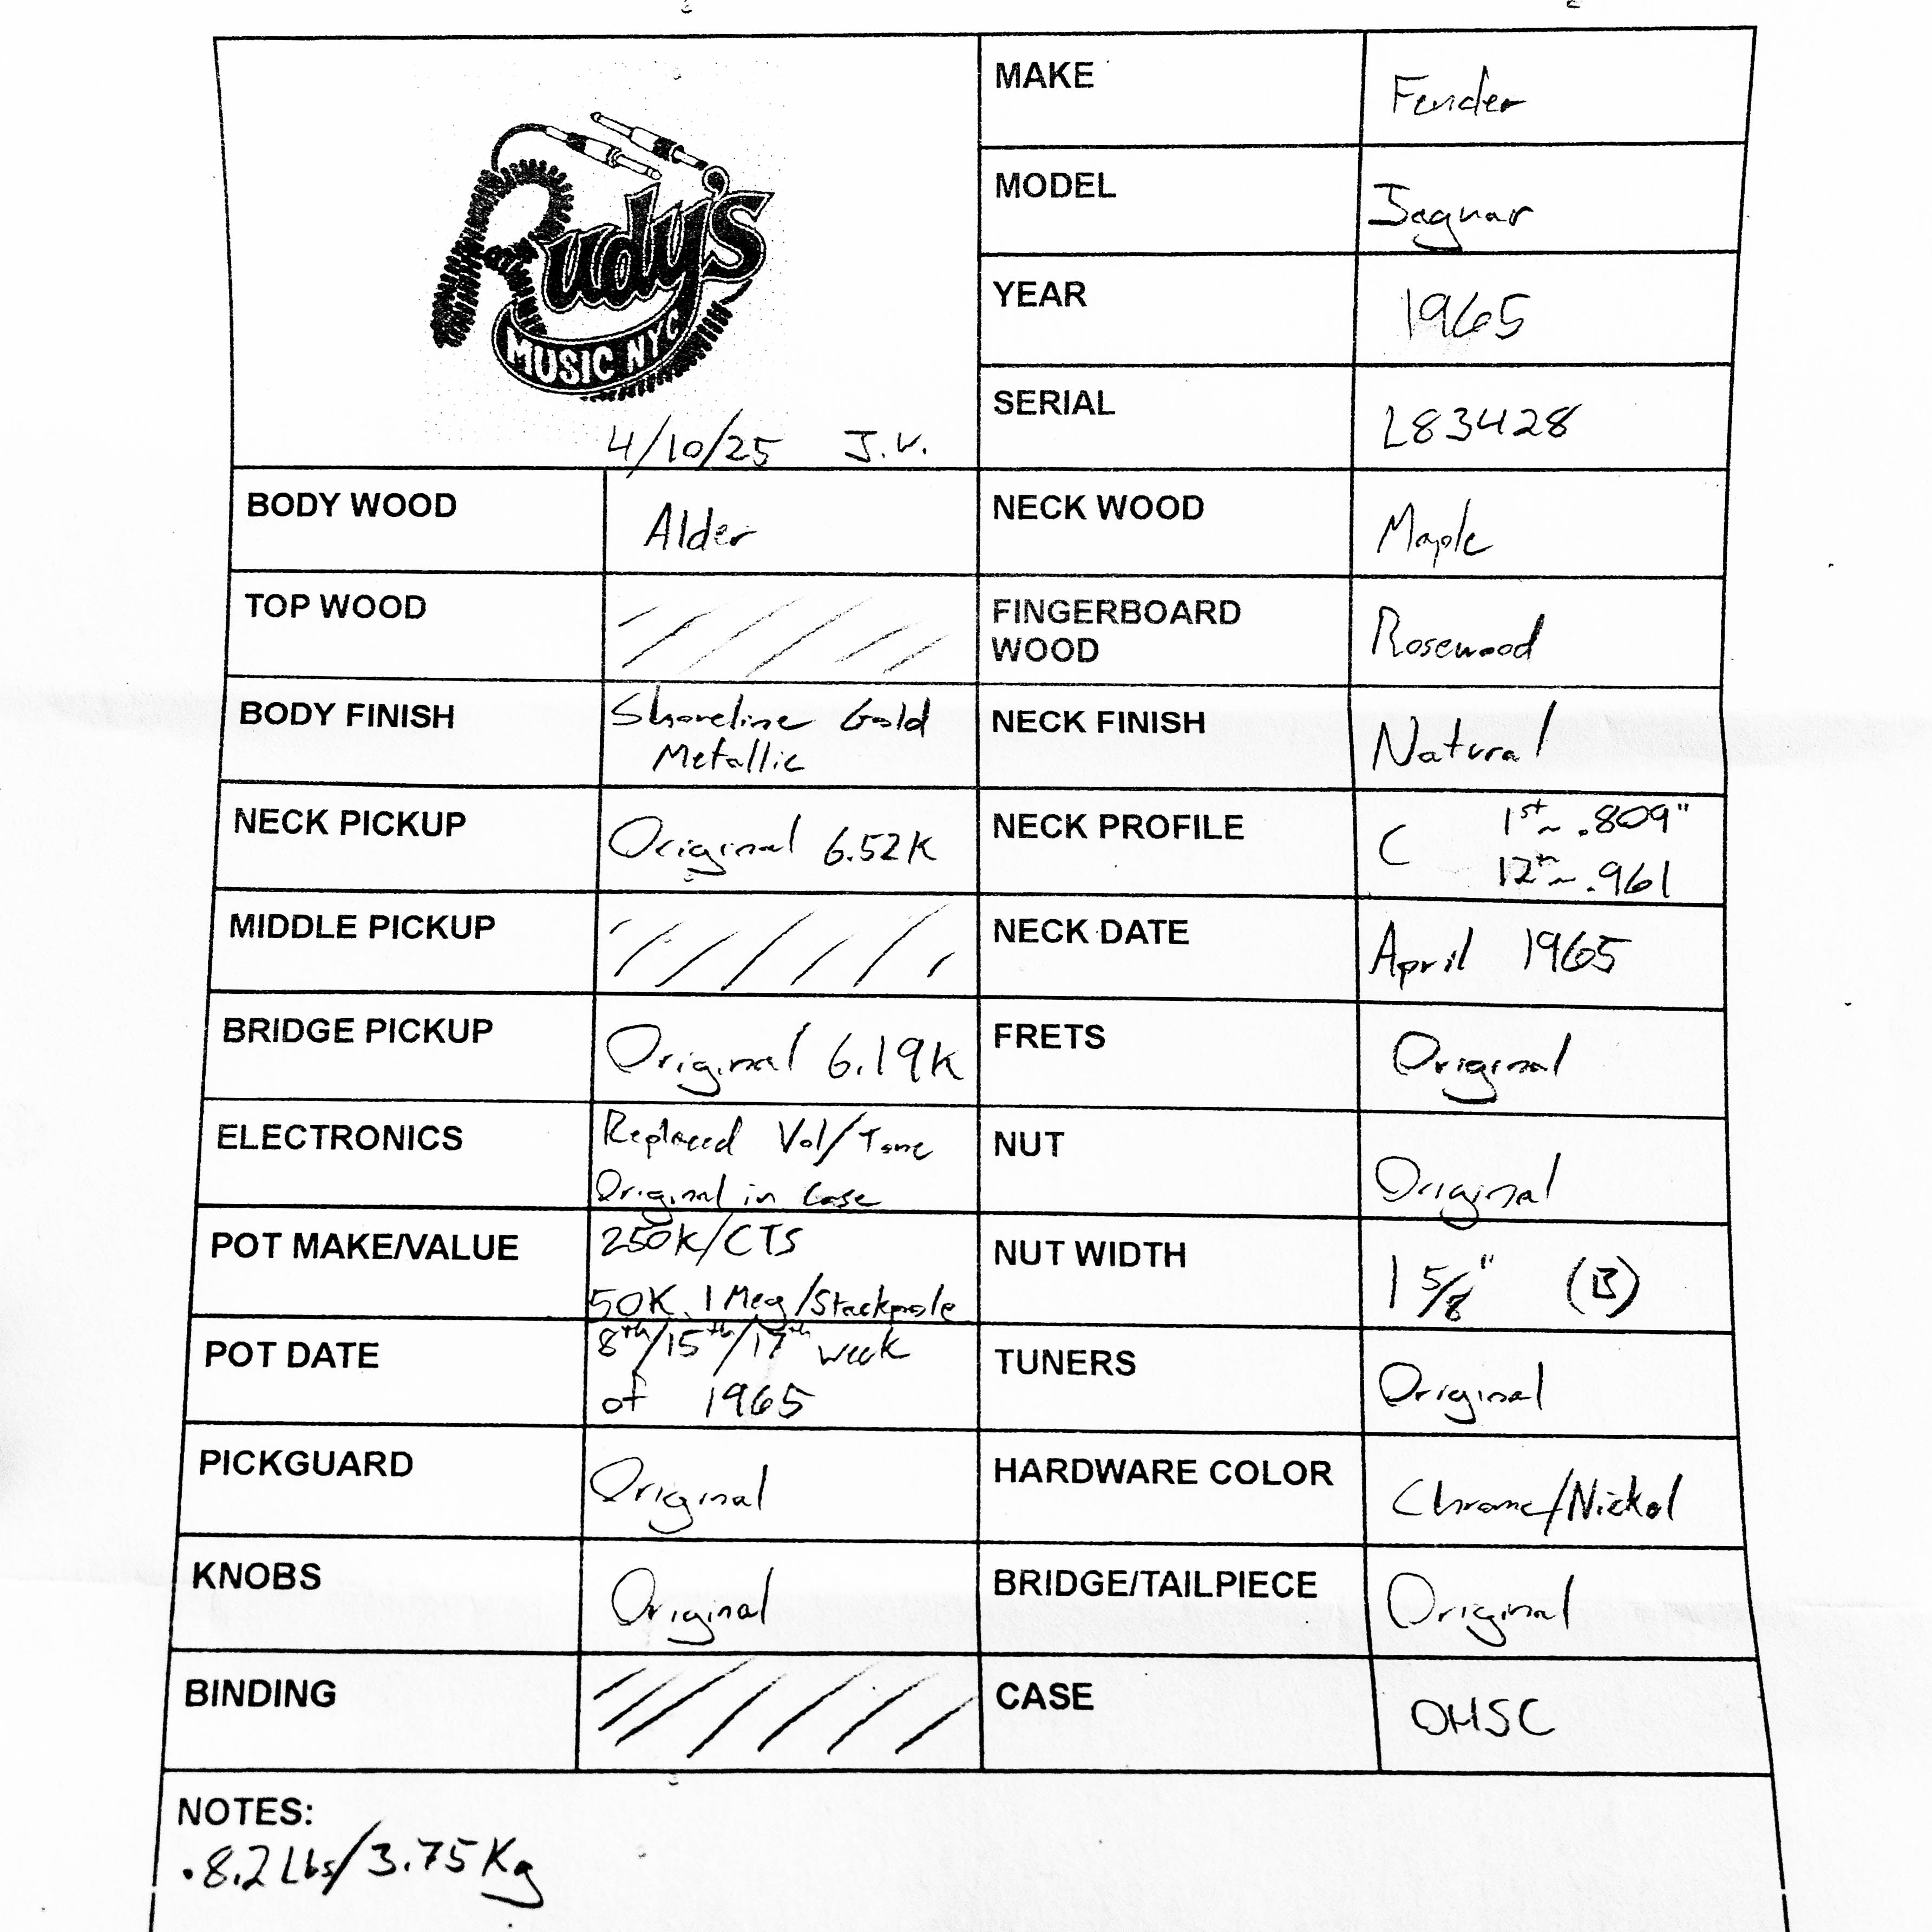 Rudy's
MUSIC NYC
4/10/25 J.V.
MAKE Fender
MODEL Jaguar
YEAR 1965
SERIAL L83428
BODY WOOD Alder
NECK WOOD Maple
TOP WOOD
FINGERBOARD
WOOD Rosewood
BODY FINISH Shoreline Gold
Metallic
NECK FINISH Natural
NECK PICKUP Original 6.52K
NECK PROFILE C 1st ~ .809"
12th ~ .961
MIDDLE PICKUP
NECK DATE April 1965
BRIDGE PICKUP Original 6.19K
FRETS Original
ELECTRONICS Replaced Vol/Tone
Original in Case
NUT Original
POT MAKE/VALUE 250K/CTS
50K, 1 Meg/Stackpole
NUT WIDTH 1 5/8" (B)
POT DATE 8th/15th/17th week
of 1965
TUNERS Original
PICKGUARD Original
HARDWARE COLOR Chrome/Nickel
KNOBS Original
BRIDGE/TAILPIECE Original
BINDING
CASE OHSC
NOTES:
.8.2 Lbs/3.75 Kg